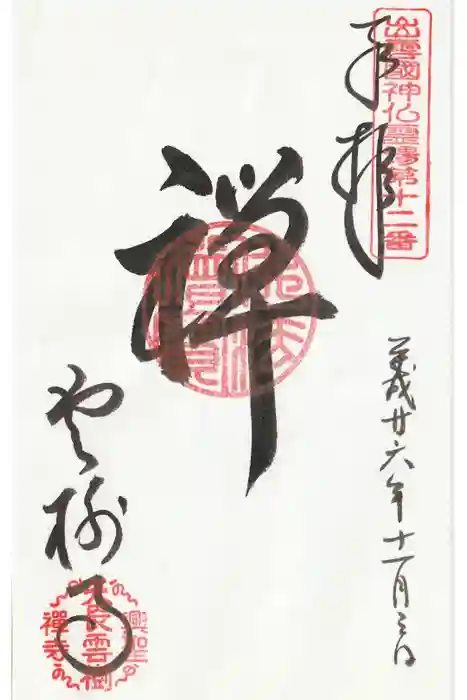 出雲國神仏霊場第十二番
奉拝
平成廿六年十一月三日
禅
雲樹寺
興聖
天長雲樹
禅寺